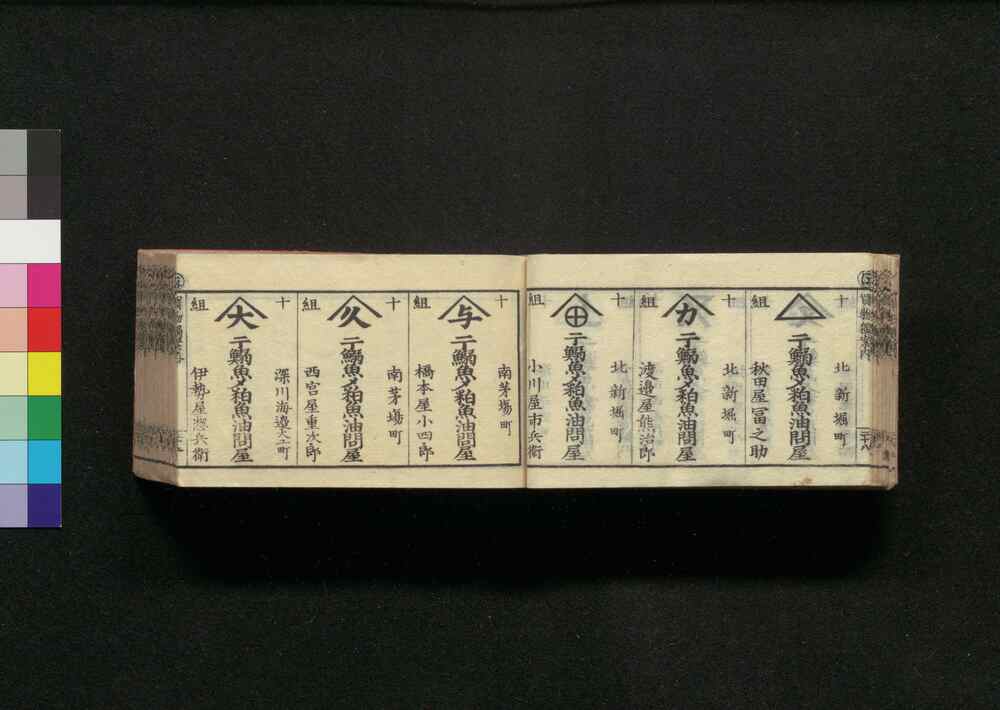 十組
北新堀町
干鰯魚〆粕魚油問屋
秋田屋冨之助
十組
力
北新堀町
干鰯魚〆粕魚油問屋
渡邉屋熊治郎
十組
北新堀町
干鰯魚〆粕魚油問屋
小川屋市兵衛
十組
与
南茅場町
干鰯魚〆粕魚油問屋
橋本屋小四郎
十組
久
南茅場町
干鰯魚〆粕魚油問屋
西宮屋重次郎
十組
大
深川海邉大工町
干鰯魚〆粕魚油問屋
伊勢屋惣兵衛